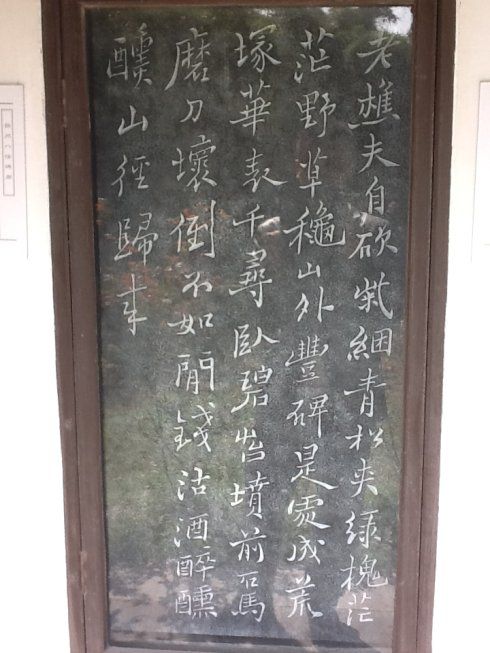 老樵夫自砍柴綑青松夾綠槐茫
茫野草穐山外豐碑是處成荒
塚華表千尋臥碧苔墳前石馬
磨刀壞倒不如閒錢沽酒醉醺
醺山徑歸来